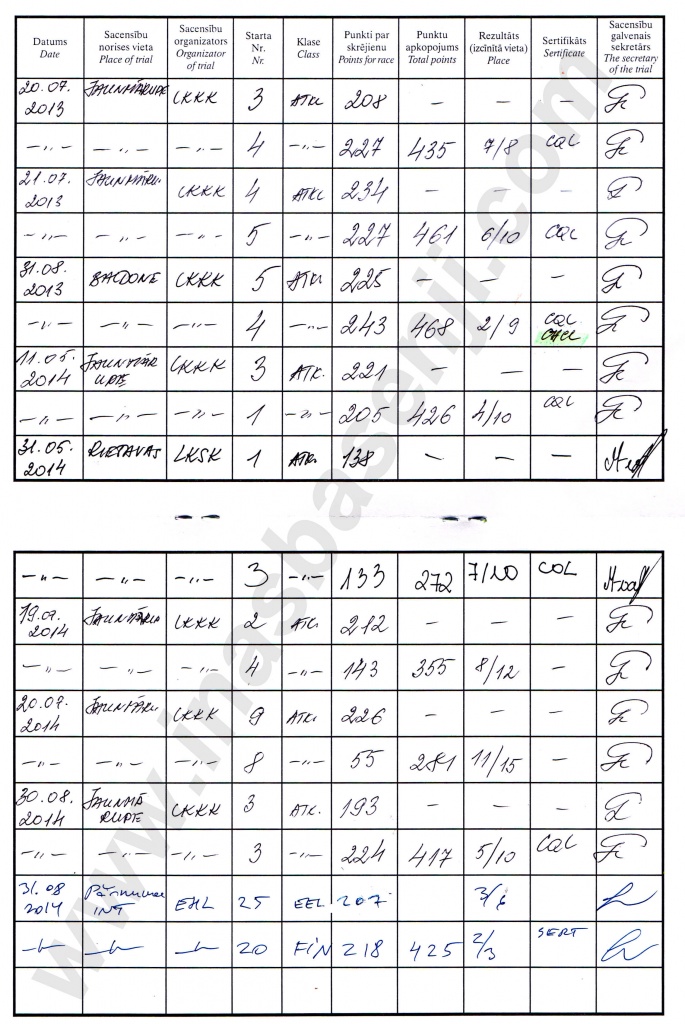 Datums Date | Sacensību norises vieta Place of trial | Sacensību organizators Organizator of trial | Starta Nr. Nr. | Klase Class | Punkti par skrējienu Points for race | Punktu apkopojums Total points | Rezultāts (izcīnītā vieta) Place | Sertifikāts Sertificate | Sacensību galvenais sekretārs The secretary of the trial
20.07. 2013 | JAUNMĀRUPE | LKKK | 3 | ATKL | 208 | — | — | —
—"— | —"— | —"— | 4 | —"— | 227 | 435 | 7/8 | CQL
21.07. 2013 | JAUNMĀRU. | LKKK | 4 | ATKL | 234 | — | — | —
—"— | —"— | —"— | 5 | —"— | 227 | 461 | 6/10 | CQL
31.08. 2013 | BALDONE | LKKK | 5 | ATKL | 225 | — | — | —
—"— | —"— | —"— | 4 | —"— | 243 | 468 | 2/9 | CQL CACL
11.05. 2014 | JAUNMĀR UPE | LKKK | 3 | ATK. | 221 | — | — | —
—"— | —"— | —"— | 1 | —"— | 205 | 426 | 4/10 | CQL
31.05. 2014 | RIETAVAS | LKSK | 1 | ATK. | 138 | — | — | —
—"— | —"— | —"— | 3 | —"— | 133 | 272 | 7/10 | CQL
19.07. 2014 | JAUNMĀRU | LKKK | 2 | ATK. | 212 | — | — | —
—"— | —"— | —"— | 4 | —"— | 143 | 355 | 8/12 | —
20.07. 2014 | JAUNMĀRU. | LKKK | 9 | ATKL | 226 | — | — | —
—"— | —"— | —"— | 8 | —"— | 55 | 281 | 11/15 | —
30.08. 2014 | JAUNMĀ RUPE | LKKK | 3 | ATK. | 193 | — | — | —
—"— | —"— | —"— | 3 | —"— | 224 | 417 | 5/10 | CQL
31.08 2014 | INT | EHL | 25 | EEL | 207 | 3/6
—"— | —"— | —"— | 20 | FIN | 218 | 425 | 2/3 | SERT
www.inasbasenji.com